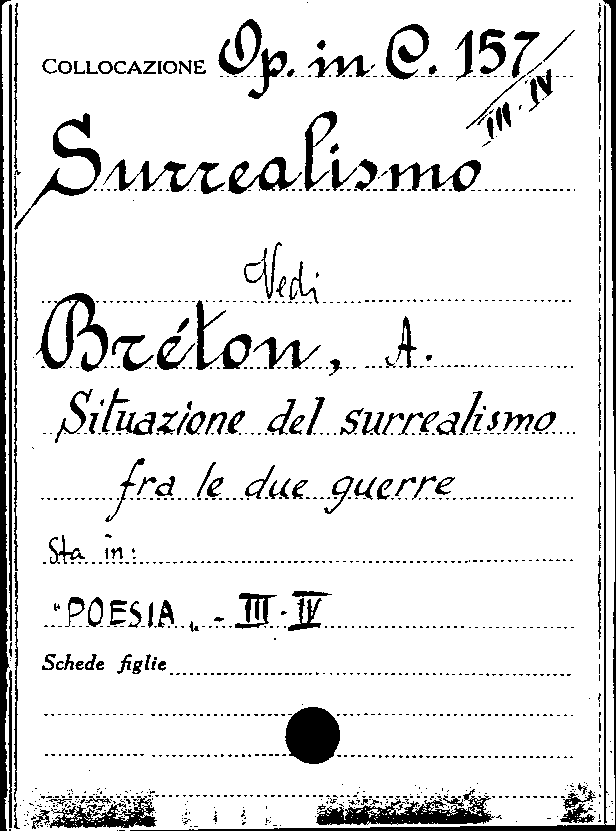 COLLOCAZIONE Op. in C. 157
III-IV
Surrealismo
Vedi
Bréton, A.
Situazione del surrealismo
fra le due guerre
Sta in:
"POESIA„ - III-IV
Schede figlie